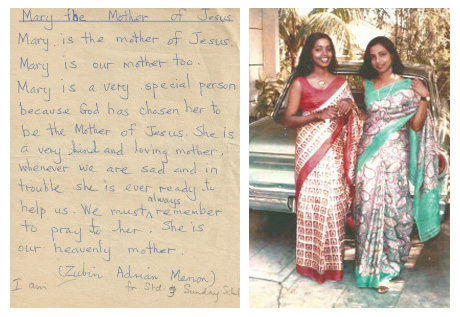 Mary the Mother of Jesus.
Mary is the mother of Jesus.
Mary is our mother too.
Mary is a very special person
because God has chosen her to
be the Mother of Jesus. She is
a very kind and loving mother,
whenever we are sad and in
trouble she is ever ready to
always
help us. We must remember
to pray to her. She is
our heavenly mother
(Zubin Adrian Menon)
I am for Std 3 Sunday